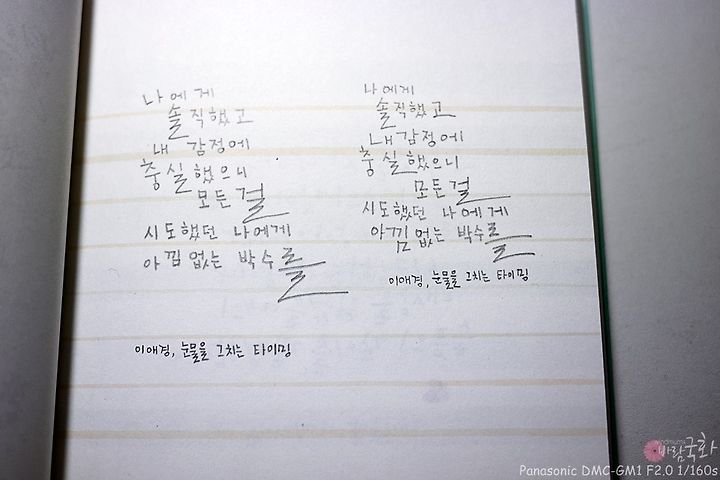 나에게
솔직했고
내 감정에
충실했으니
모든걸
시도했던 나에게
아낌없는 박수를
이애경, 눈물을 그치는 타이밍
나에게
솔직했고
내감정에
충실했으니
모든걸
시도했던 나에게
아낌없는 박수를
이애경, 눈물을 그치는 타이밍
windmums
바람국화
Panasonic DMC-GM1 F2.0 1/160s